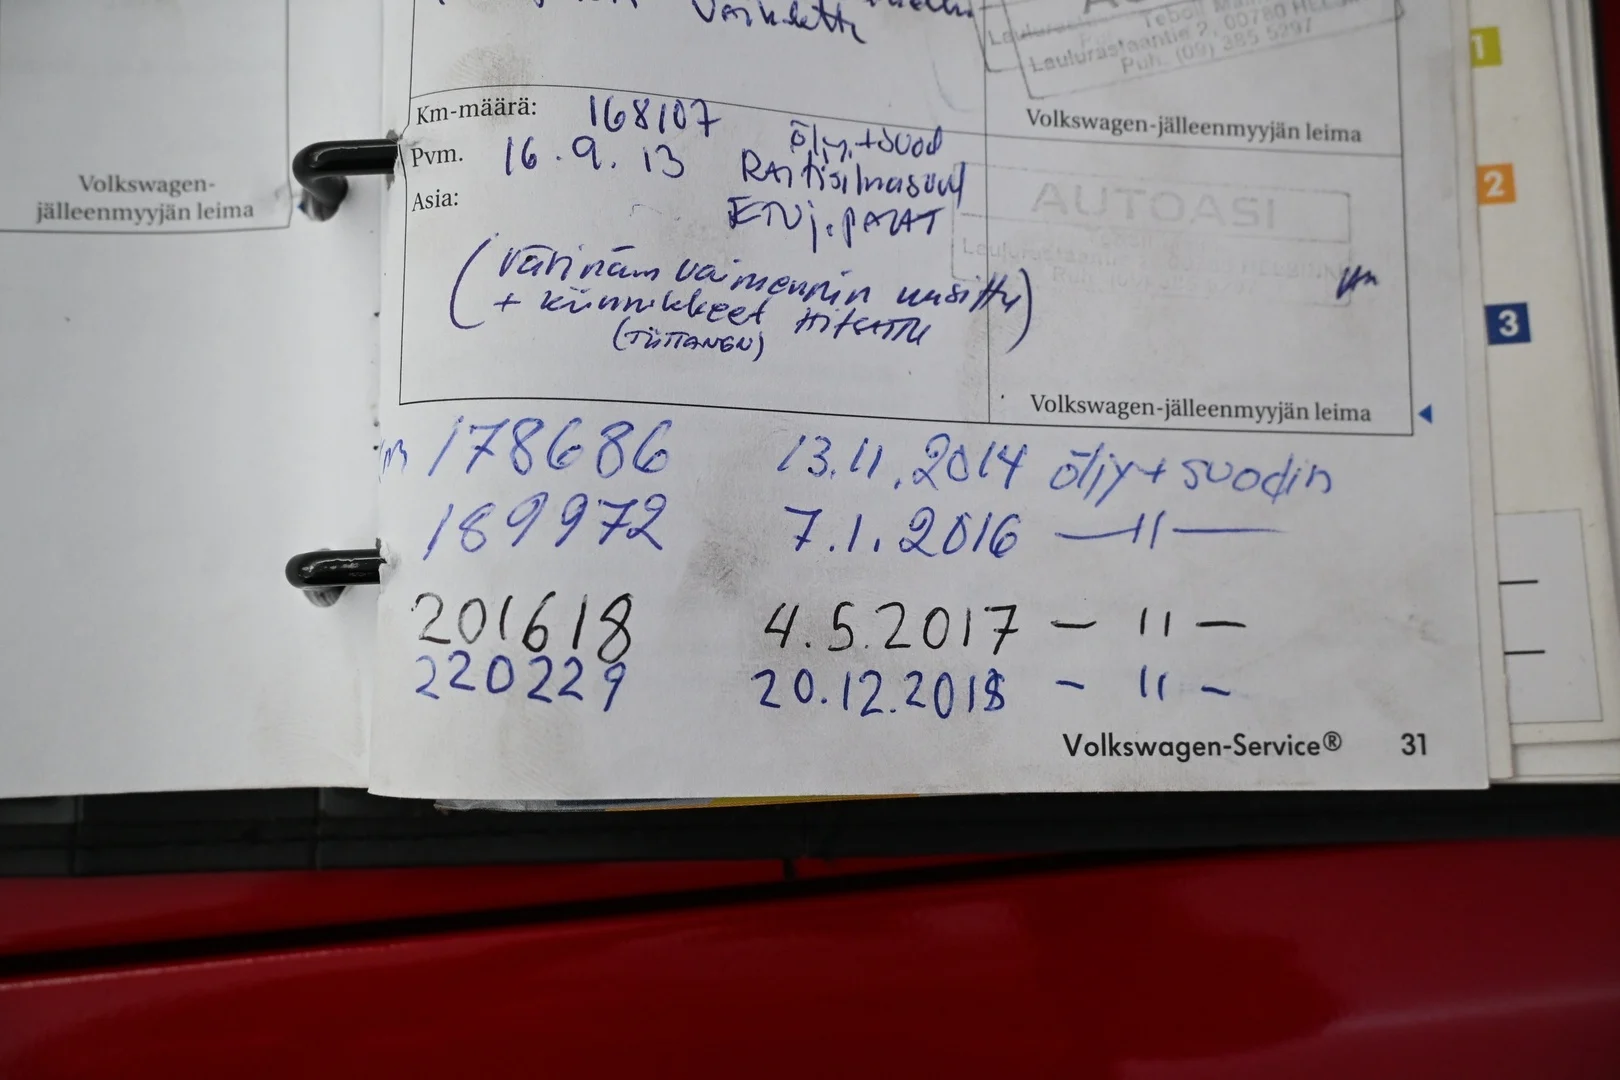 Vaihdettu
Teboil
Laulurastaantie 2, 00780 HELSINKI
Puh. (09) 385 5297
Volkswagen-jälleenmyyjän leima
Volkswagen-
jälleenmyyjän leima
Km-määrä: 168107
Pvm. 16.9.13
Asia:
öljy+suod
RAitisilmasuod
ETuj.pALAT
(värinän vaimennin uusittu
+ kiinnikkeet Hitsattu)
(TiiTTANEN)
AUTOASI
Volkswagen-jälleenmyyjän leima
km 178686 13.11.2014 öljy+suodin
189972 7.1.2016 —11—
201618 4.5.2017 — 11 —
220229 20.12.2018 - 11 -
Volkswagen-Service® 31
1
2
3